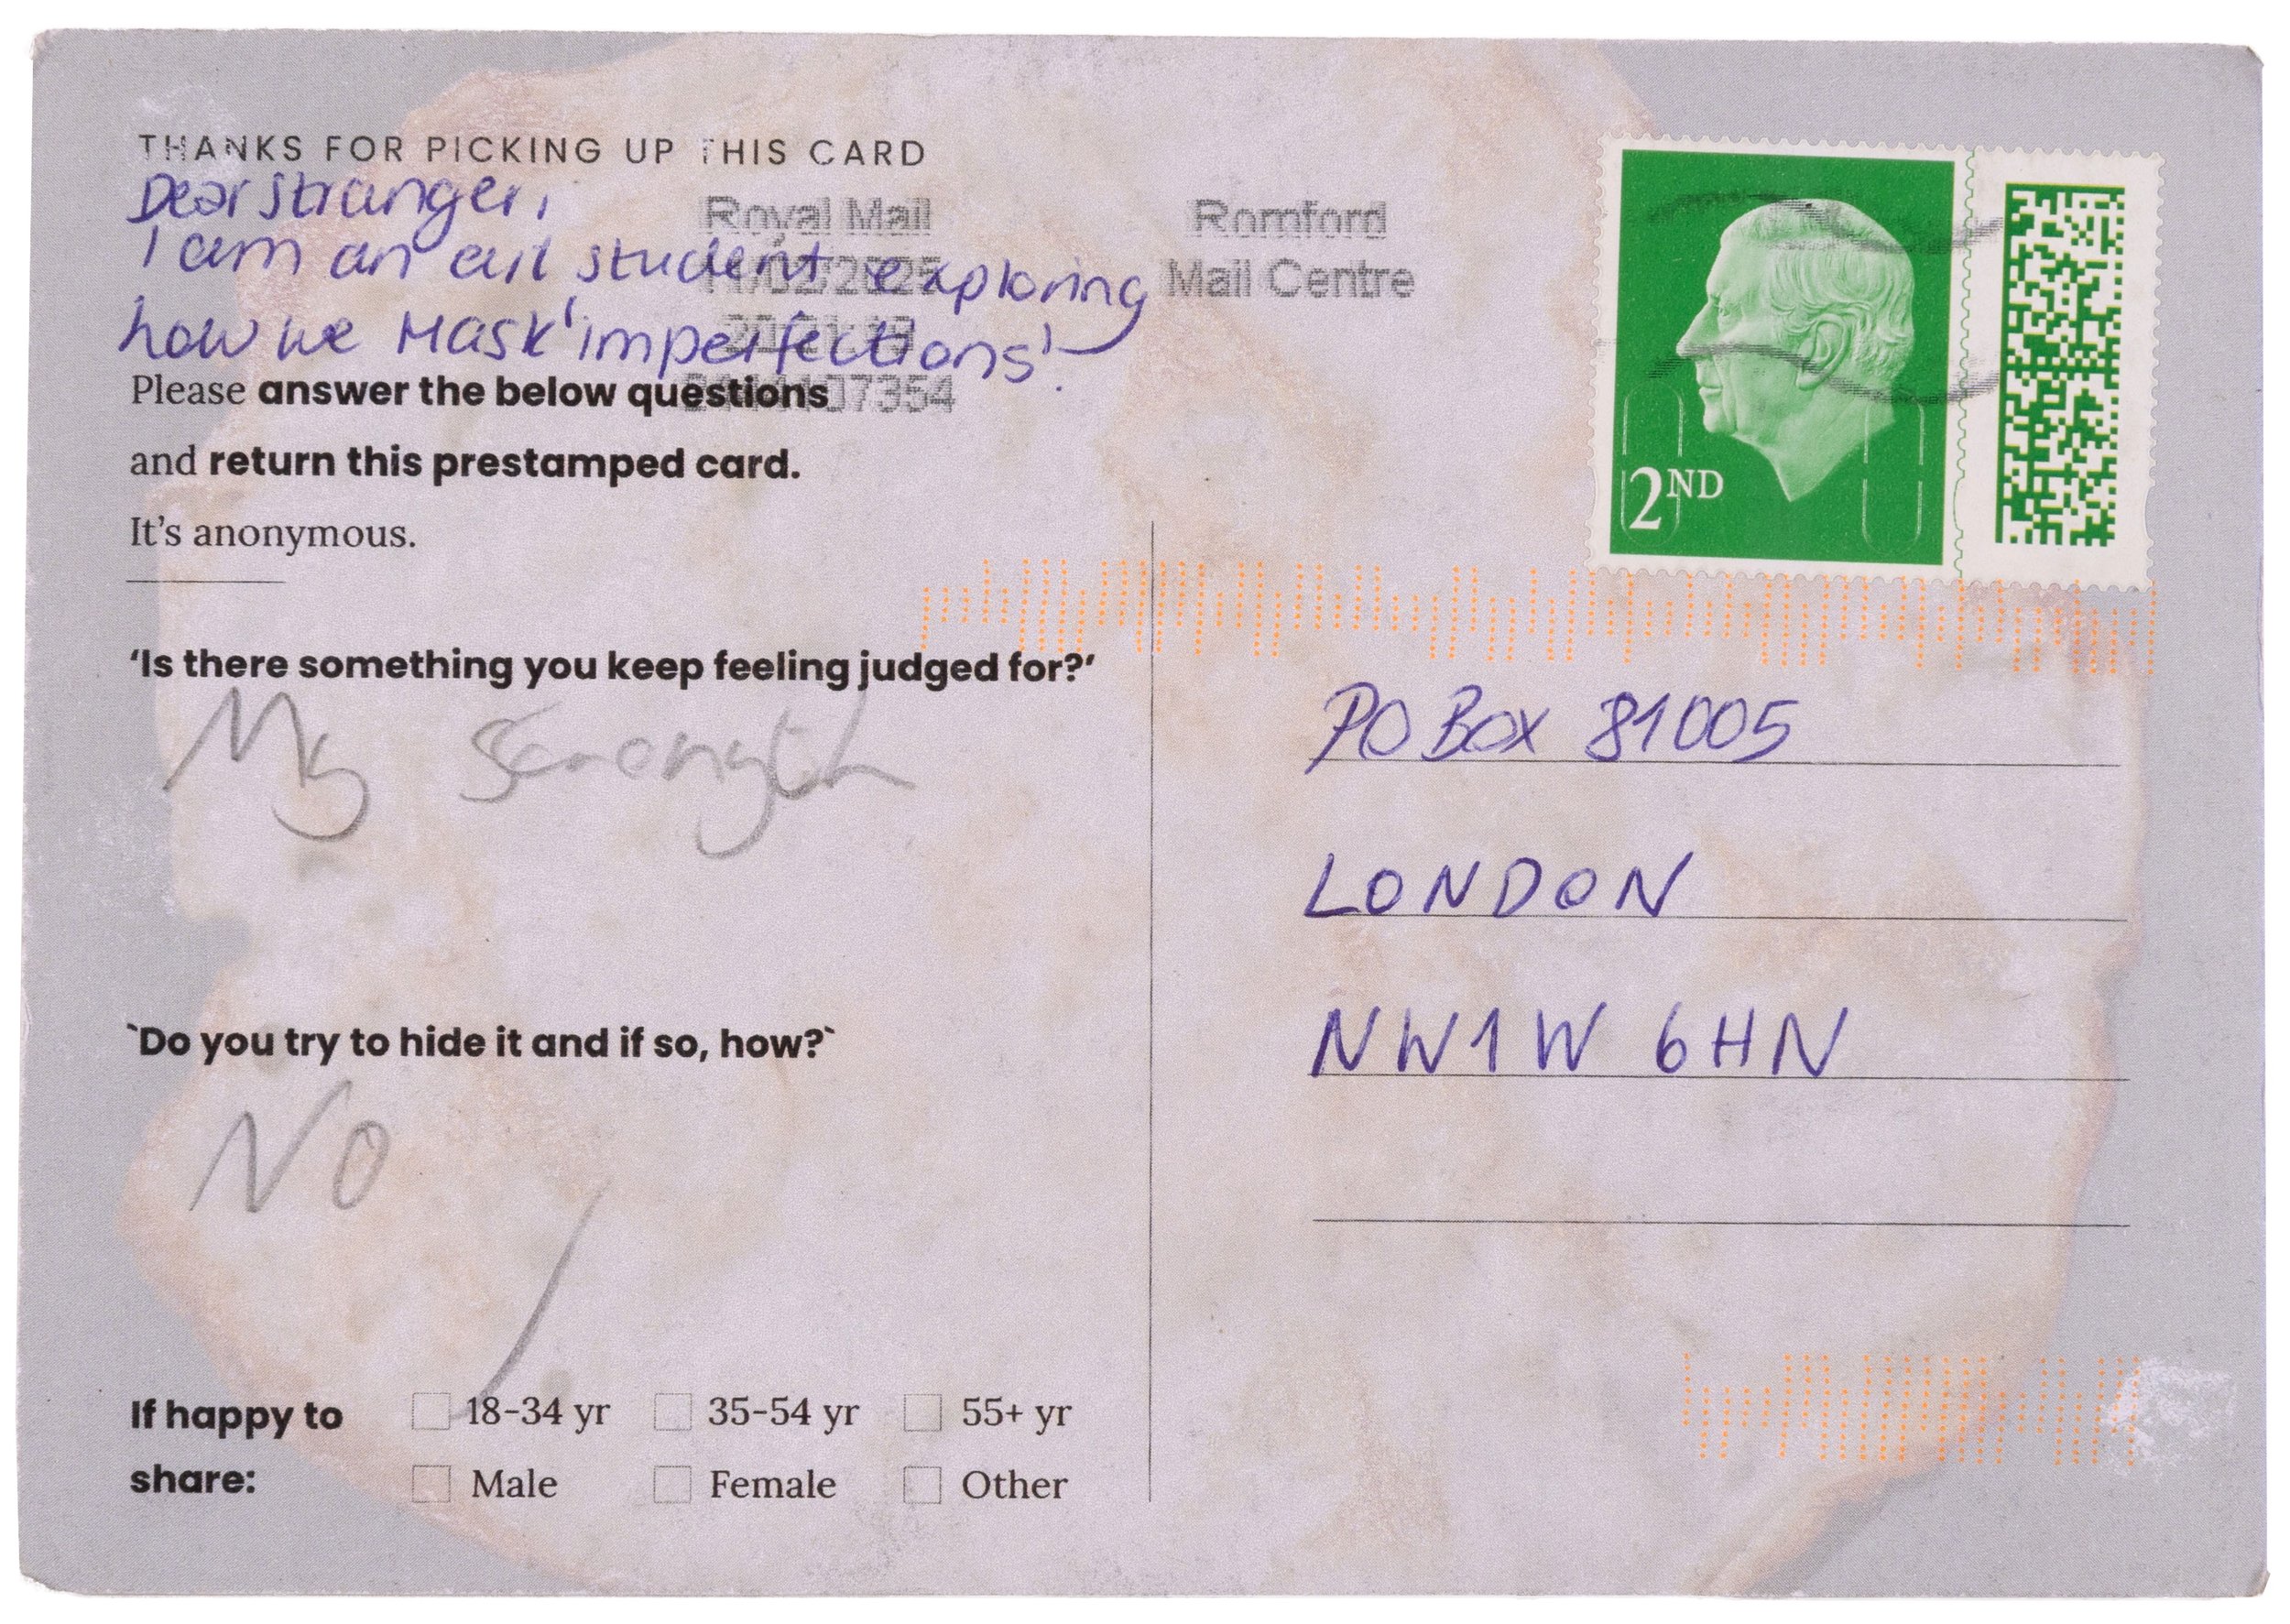 THANKS FOR PICKING UP THIS CARD
Dear stranger,
I am an art student exploring
how we mask 'imperfections'.
Please answer the below questions
and return this prestamped card.
It's anonymous.
Royal Mail
Romford
Mail Centre
2ND
'Is there something you keep feeling judged for?'
My Strength
`Do you try to hide it and if so, how?`
No
If happy to share:
18-34 yr 35-54 yr 55+ yr
Male Female Other
PO BOX 81005
LONDON
NW1W 6HN